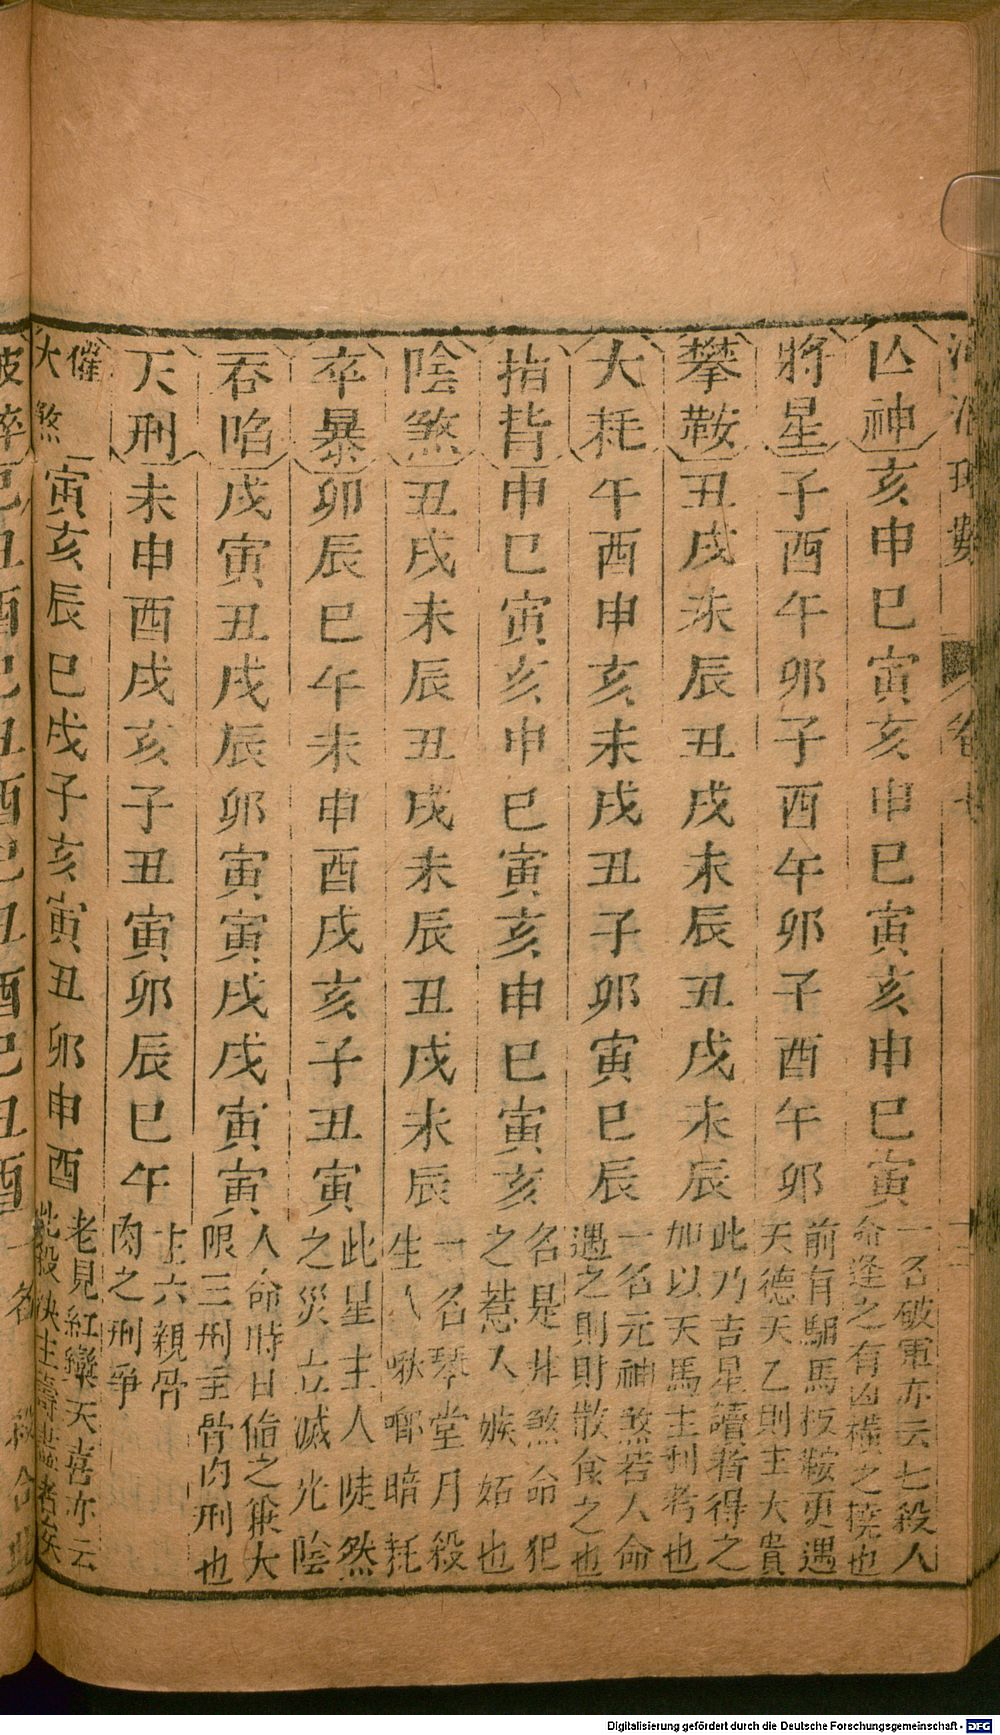 卷七
亾神 亥申巳寅亥申巳寅亥申巳寅 一名破軍亦云七殺人
命逢之有凶橫之撓也
將星 子酉午卯子酉午卯子酉午卯 前有駟馬扳鞍更遇
天德天乙則主大貴
攀鞍 丑戌未辰丑戌未辰丑戌未辰 此乃吉星讀者得之
加以天馬主利考也
大耗 午酉申亥未戌丑子卯寅巳辰 一名元神煞若人命
遇之則財散食之也
指背 申巳寅亥申巳寅亥申巳寅亥 名是非煞命犯
之惹人嫉妬也
陰煞 丑戌未辰丑戌未辰丑戌未辰 一名琴堂月殺
生人啾唧暗耗
卒暴 卯辰巳午未申酉戌亥子丑寅 此星主人陡然
之災立滅光陰
吞啗 戌寅丑戌辰卯寅寅戌戌寅寅 人命時日值之兼大
限三刑主骨肉刑也
天刑 未申酉戌亥子丑寅卯辰巳午 主六親骨
肉之刑爭
催大煞 寅亥辰巳戌子亥寅丑卯申酉 老見紅鸞天喜亦云
此殺決主壽
破碎 巳丑酉巳丑酉巳丑酉巳丑酉 一名
Digitalisierung gefördert durch die Deutsche Forschungsgemeinschaft - DFG